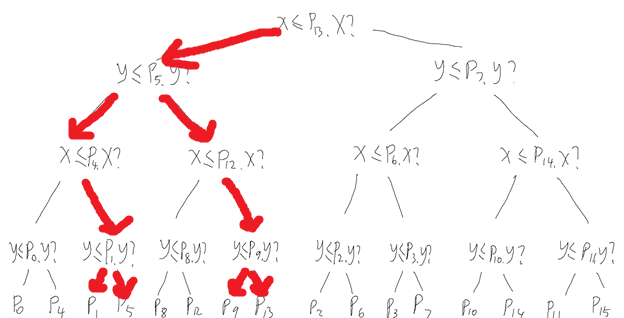 x ≤ P13.X?
y ≤ P5.y?
y ≤ P7.y?
x ≤ P4.X?
x ≤ P12.X?
x ≤ P6.X?
x ≤ P14.X?
y ≤ P0.y?
y ≤ P1.y?
y ≤ P8.y?
y ≤ P9.y?
y ≤ P2.y?
y ≤ P3.y?
y ≤ P10.y?
y ≤ P11.y?
P0 P4 P1 P5 P8 P12 P9 P13 P2 P6 P3 P7 P10 P14 P11 P15